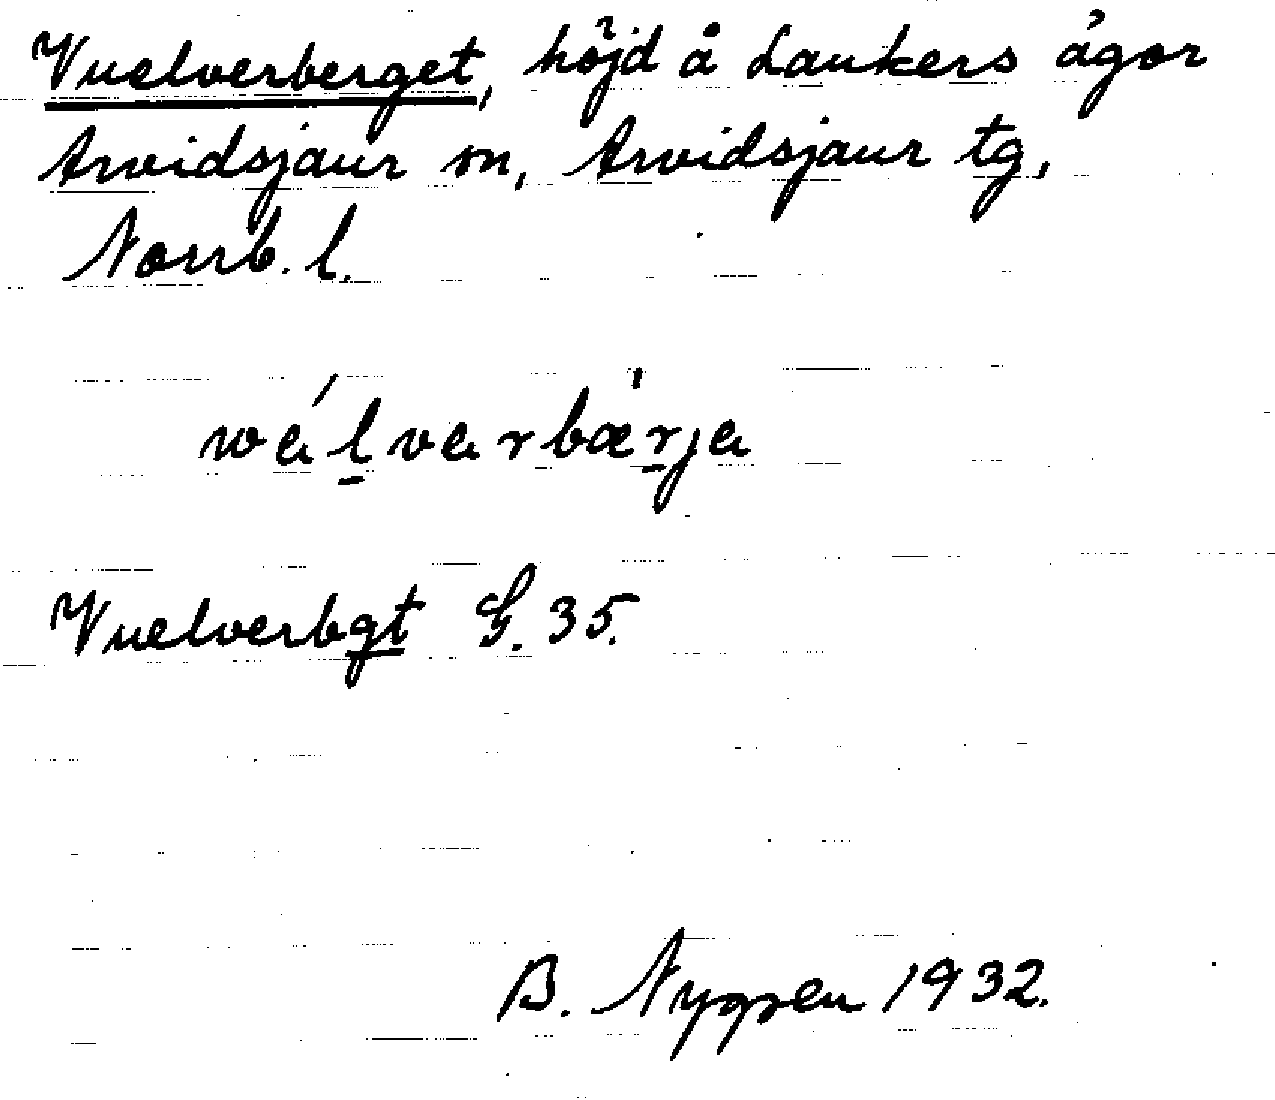 Vuelverberget, höjd å Laukers ägor
Arvidsjaur sn, Arvidsjaur tg,
Norrb. l.
wálvarbærja
Vuelverbgt G. 35.
B. Nygren 1932.